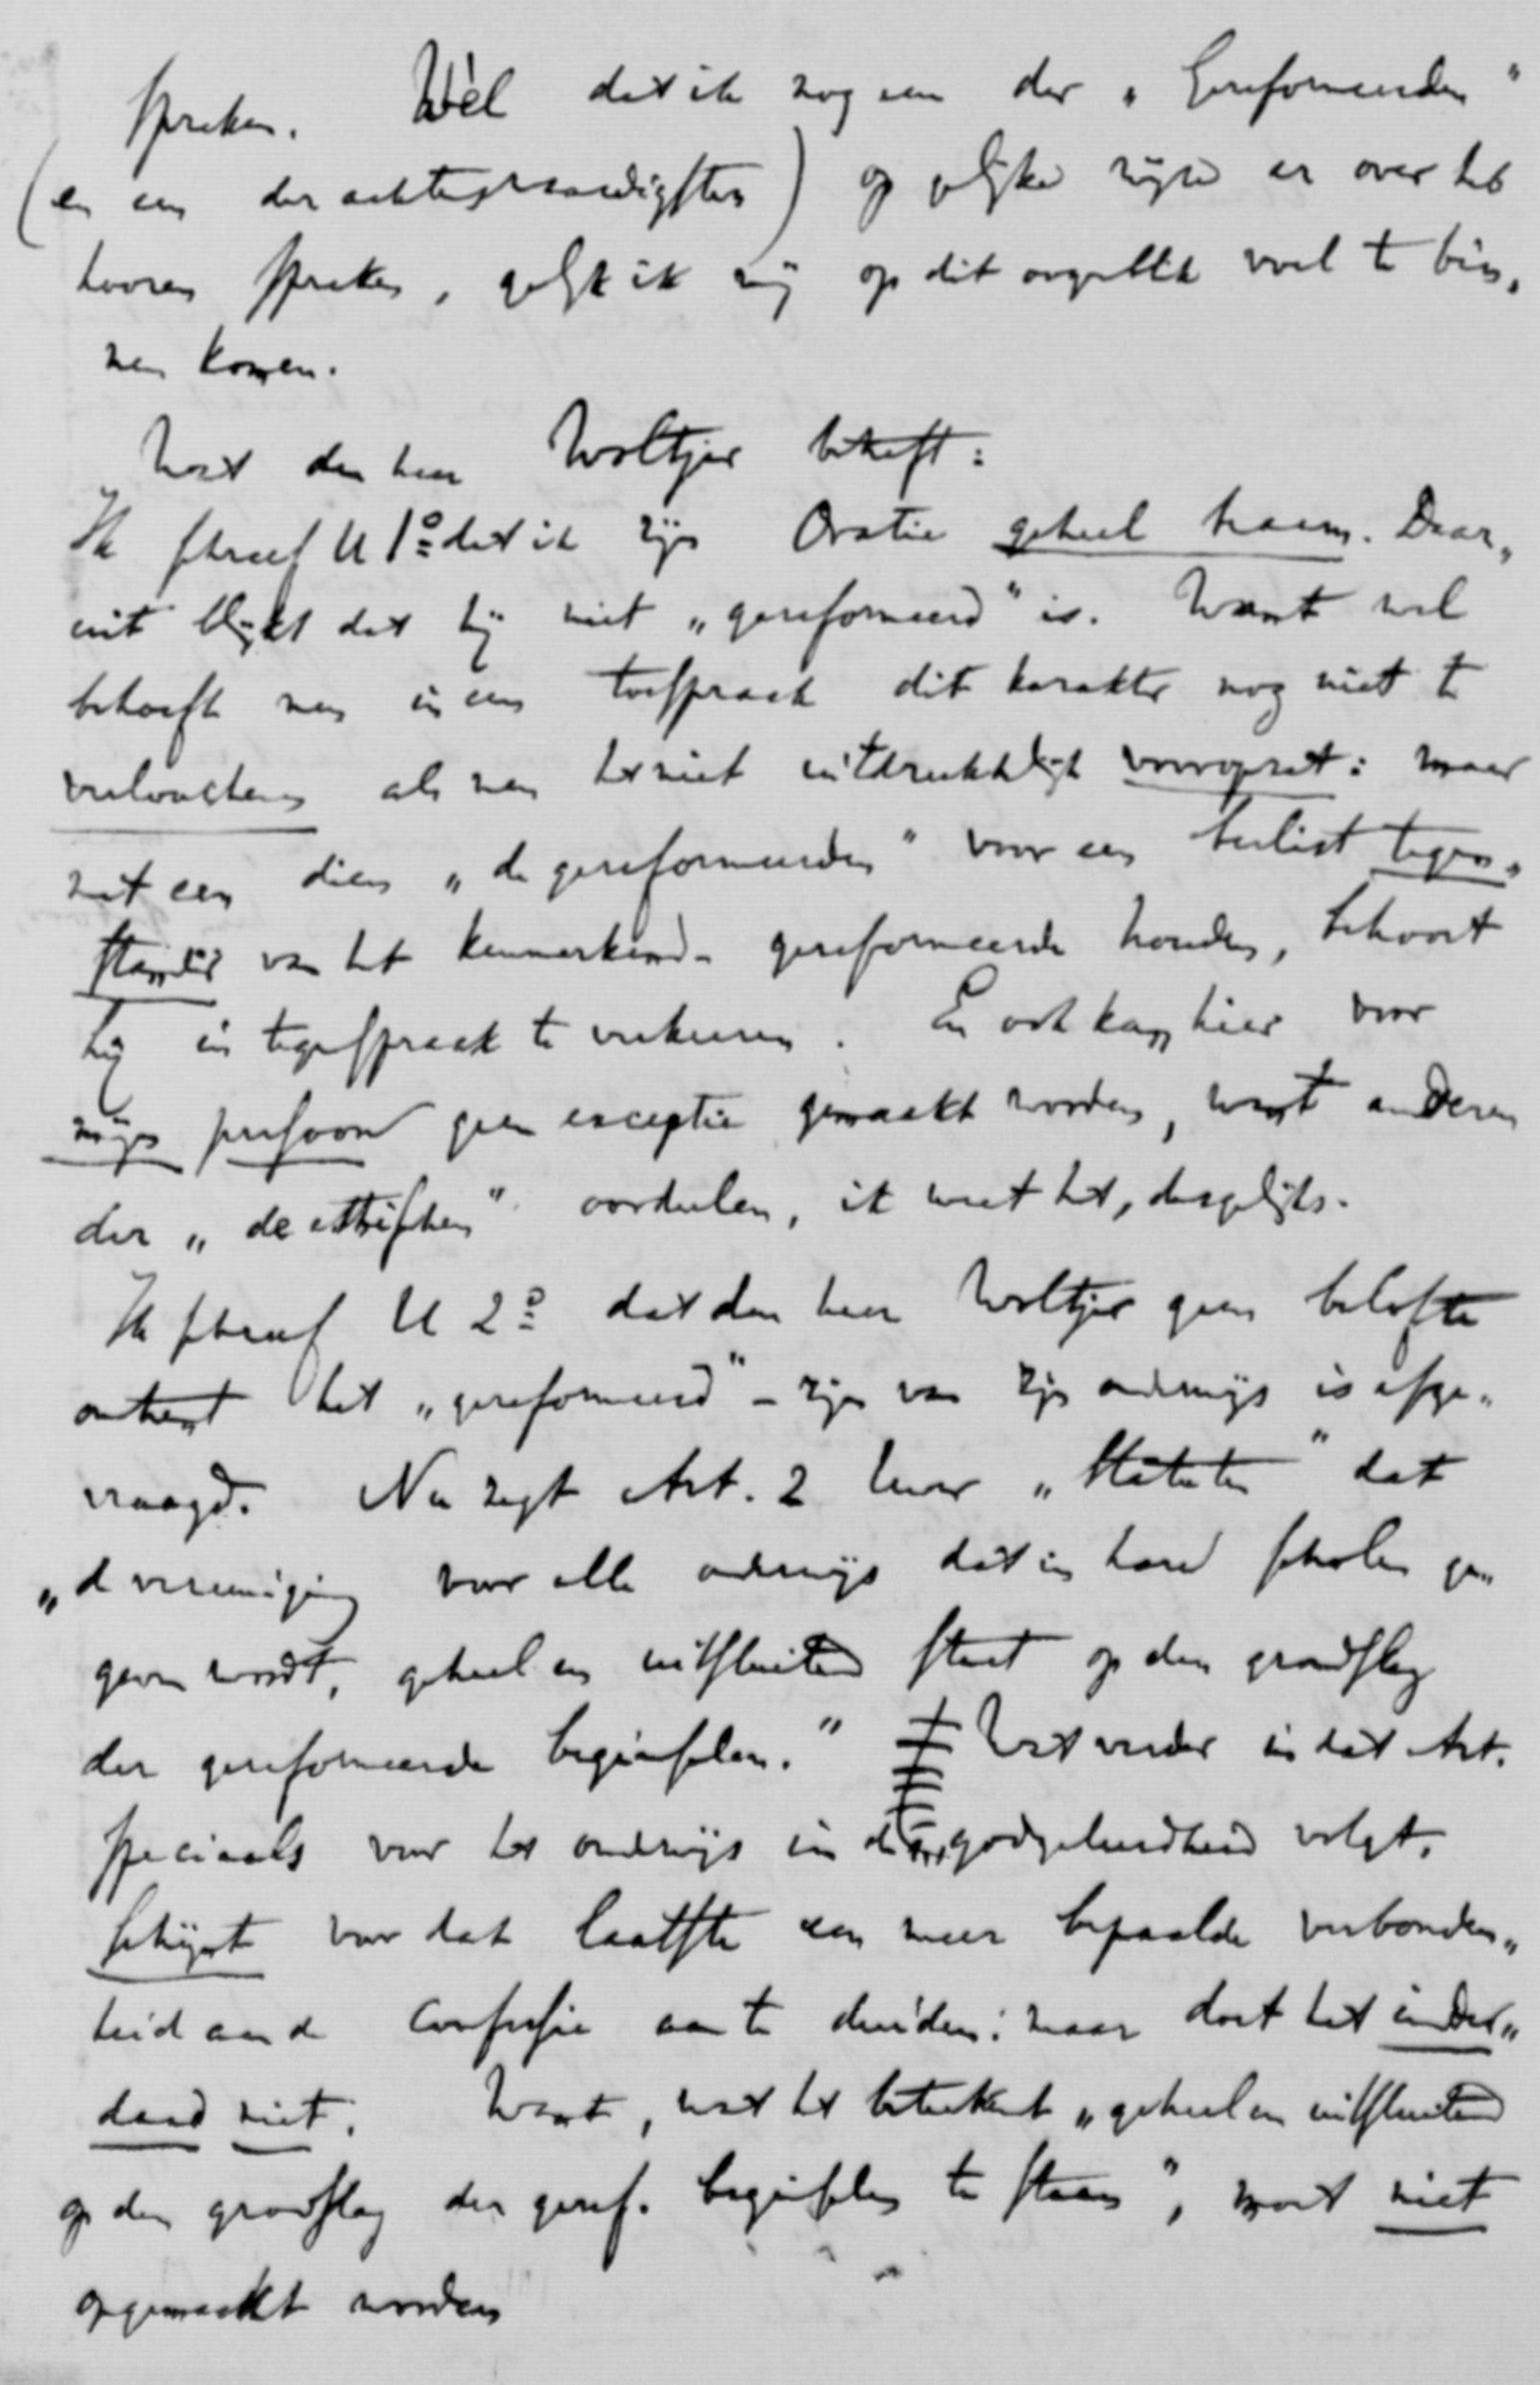 spreken. Wèl dat ik nog een der „Gereformeerden"
(en een der achtenswaardigsten) op gelijke wijze er over heb
hooren spreken, gelijk ik mij op dit oogenblik wel te bin„
nen komen.
Wat den heer Woltjer betreft:
Ik schreef U 1º dat ik zijn Oratie geheel beaam. Daar„
uit blijkt dat hij niet „gereformeerd" is. Want wel
behoeft men in een toespraak dit karakter nog niet te
verloochenen als men het niet uitdrukkelijk vooropzet: maar
met een dien „de gereformeerden" voor een beslist tegen„
stander van het kenmerkend-gereformeerde houden, behoort
hij in tegenspraak te verkeeren. En ook kan hier voor
mijn persoon geen exceptie gemaakt worden, want anderen
der „de ethischen" oordeelen, ik weet het, desgelijks.
Ik schreef U 2º dat den heer Woltjer geen belofte
omtrent het „gereformeerd"-zijn van zijn onderwijs is afge„
vraagd. Nu zegt Art. 2 der „Statuten" dat
„de vereeniging voor alle onderwijs dat in hare scholen ge„
geven wordt, geheel en uitsluitend staat op den grondslag
der gereformeerde beginselen." Wat verder in dat Art.
speciaals voor het onderwijs in de godgeleerdheid volgt,
schijnt voor dat laatste een meer bepaalde verbonden„
heid aan de Confessie aan te duiden: maar doet het inder„
daad niet. Want, wat het beteekent „geheel en uitsluitend
op den grondslag der geref. beginselen te staan", moet niet
opgemaakt worden